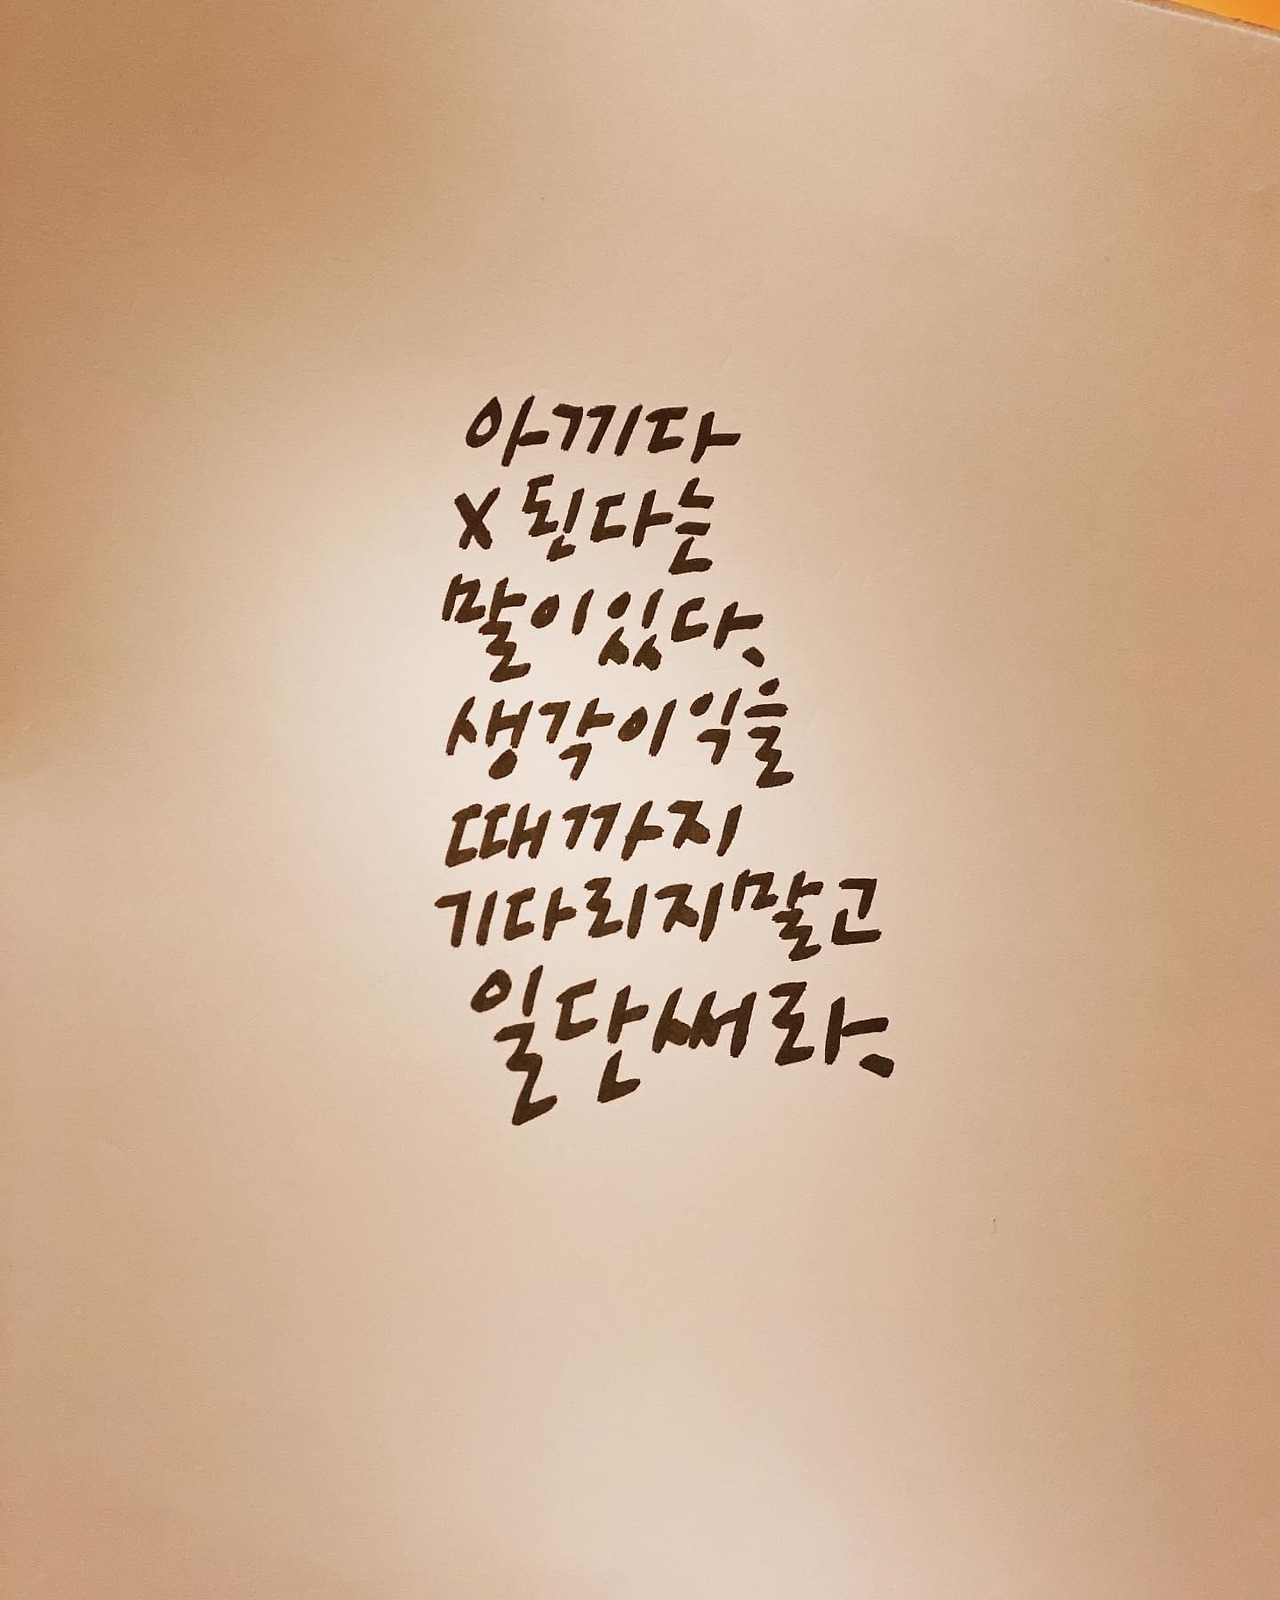 아끼다
X 된다는
말이있다.
생각이익을
때까지
기다리지말고
일단써라.